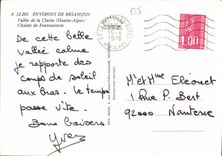 A 12.203 ENVIRONS DE BRIANÇON
Vallée de la Clarée (Hautes-Alpes)
Chalets de Fontcouverte
De cette belle
vallée calme
je rapporte des
coups de soleil
aux bras. le temps
passe vite.
Bons baisers
Yves
1,00
Mr et Mme
1 Rue P. Bert
92000 Nanterre